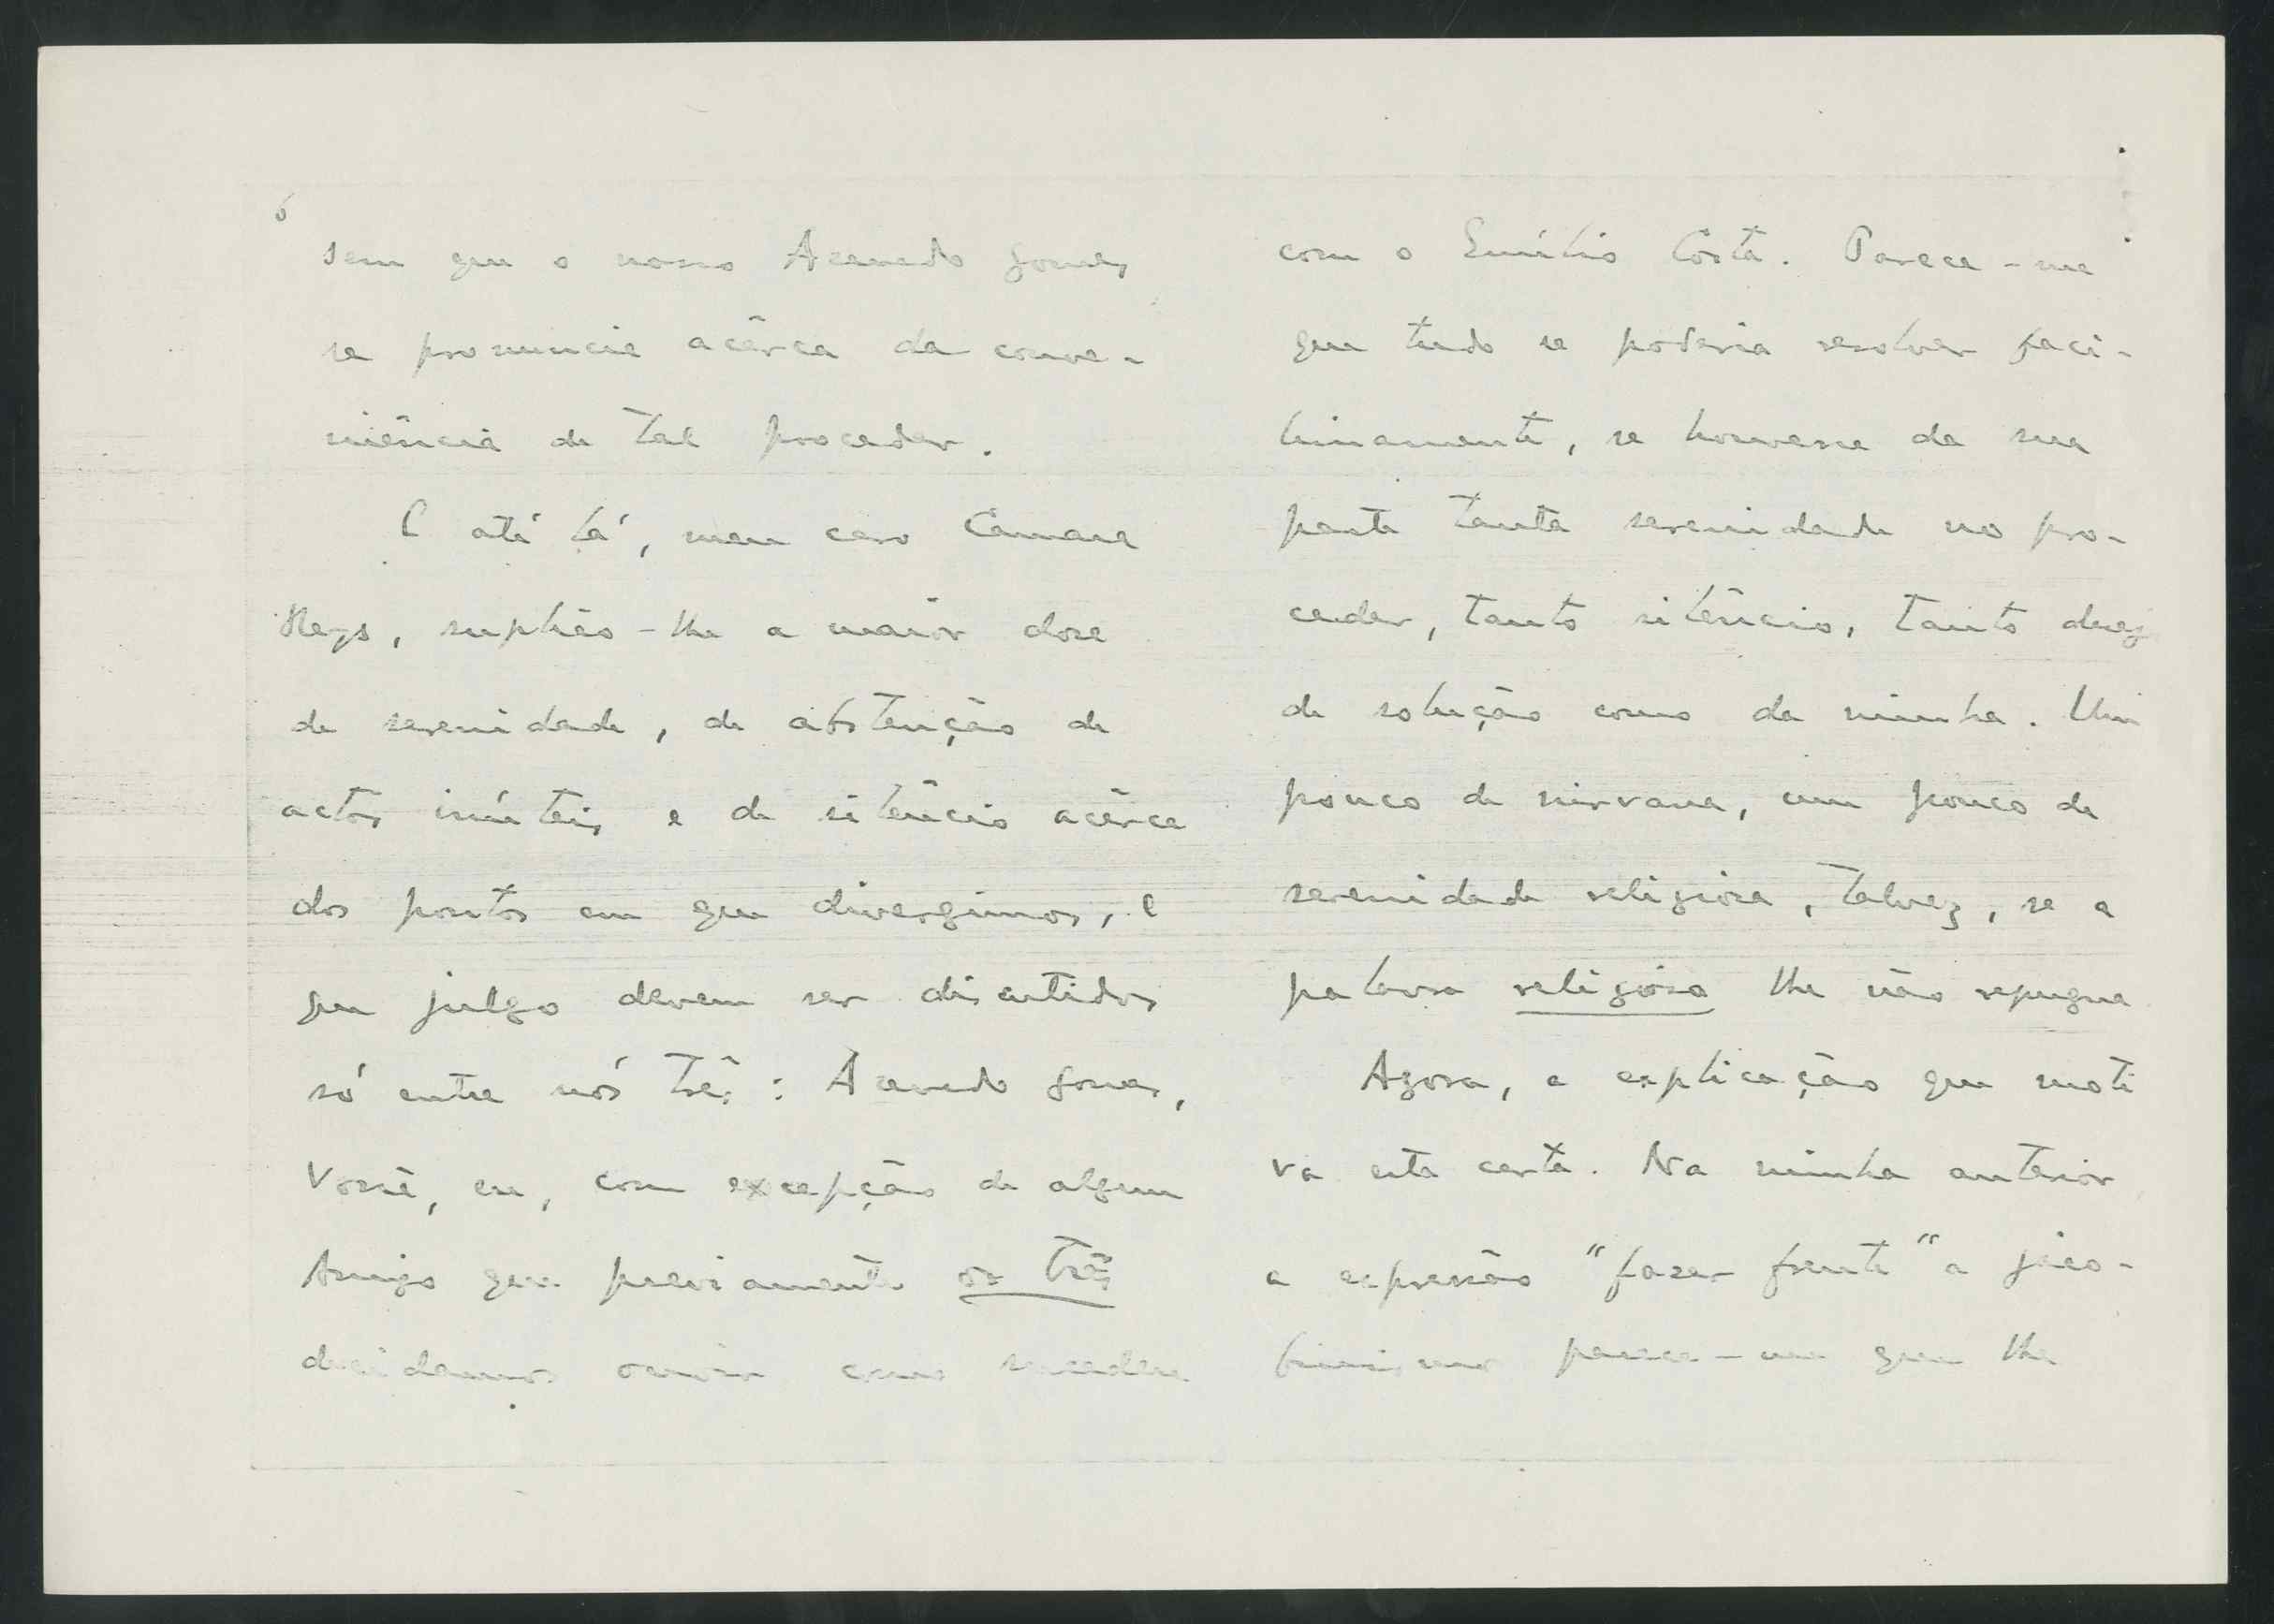 6
sem que o nosso Azevedo Gomes
se pronuncie acêrca da conve-
niência de tal proceder.
E até lá, meu caro Câmara
Reys, suplico-lhe a maior dose
de serenidade, de abstenção de
actos inúteis e de silêncio acêrca
dos pontos em que divergimos, e
que julgo devem ser discutidos
só entre nós três: Azevedo Gomes,
Você, eu, com excepção de algum
Amigo que previamente os três
decidamos ouvir como sucedeu
com o Emílio Costa. Parece-me
que tudo se poderia resolver faci-
limamente, se houvesse da sua
parte tanta serenidade no pro-
ceder, tanto silêncio, tanto desej
de solução como da minha. Um
pouco de nirvana, um pouco de
serenidade religiosa, talvez, se a
palavra religiosa lhe não repugna
Agora, a explicação que moti
va esta carta. Na minha anterior
a expressão "fazer frente" a jaco-
binismo parece-me que lhe